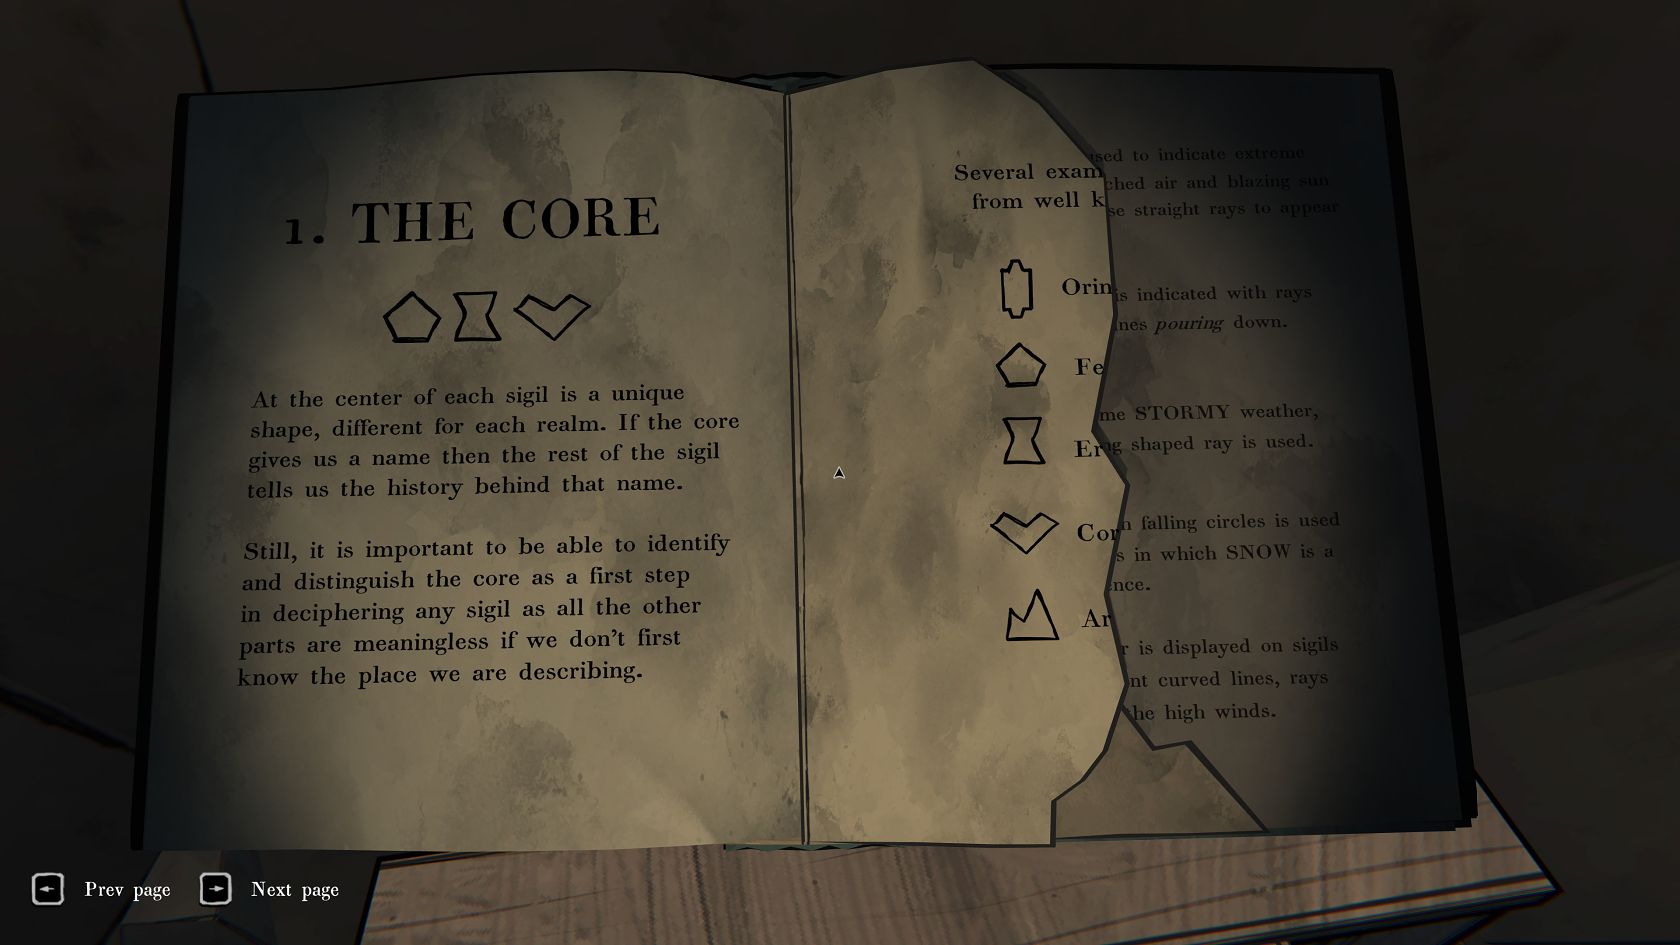 1. THE CORE
At the center of each sigil is a unique
shape, different for each realm. If the core
gives us a name then the rest of the sigil
tells us the history behind that name.
Still, it is important to be able to identify
and distinguish the core as a first step
in deciphering any sigil as all the other
parts are meaningless if we don't first
know the place we are describing.
Several exam
from well k
Orin
Fe
Er
Cor
Ar
sed to indicate extreme
ched air and blazing sun
se straight rays to appear
is indicated with rays
nes pouring down.
me STORMY weather,
g shaped ray is used.
n falling circles is used
s in which SNOW is a
nce.
r is displayed on sigils
nt curved lines, rays
the high winds.
Prev page
Next page